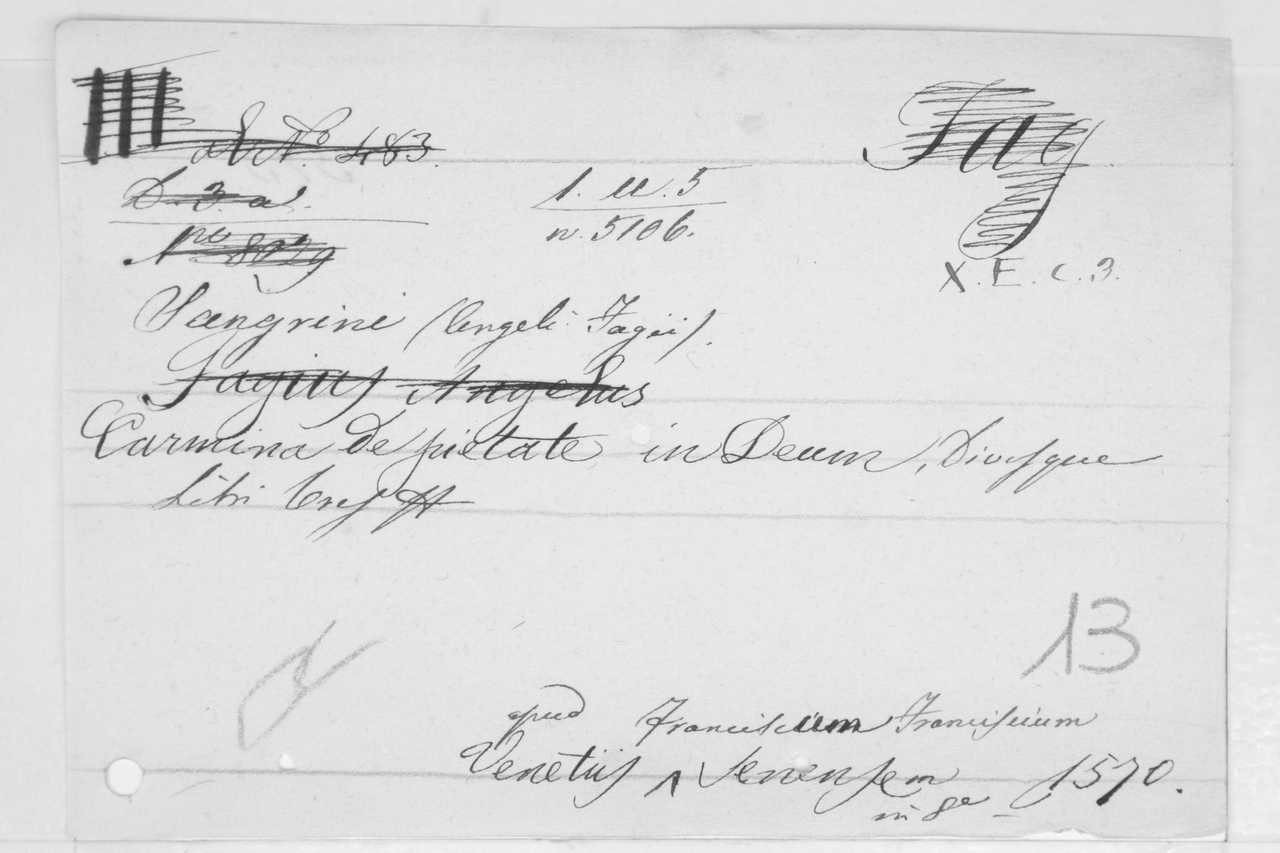 III
N.º 483
D. 3. a.
1. u. 5
n. 5106.
Fag
X. E. C. 3.
Sangrini (Angeli Fagii).
Fagius Angelus
Carmina de pietate in Deum, Divosque
Libri tres
13
apud Franciscum Franciscium
Venetiis ʌ Senensem 1570.
in 8º